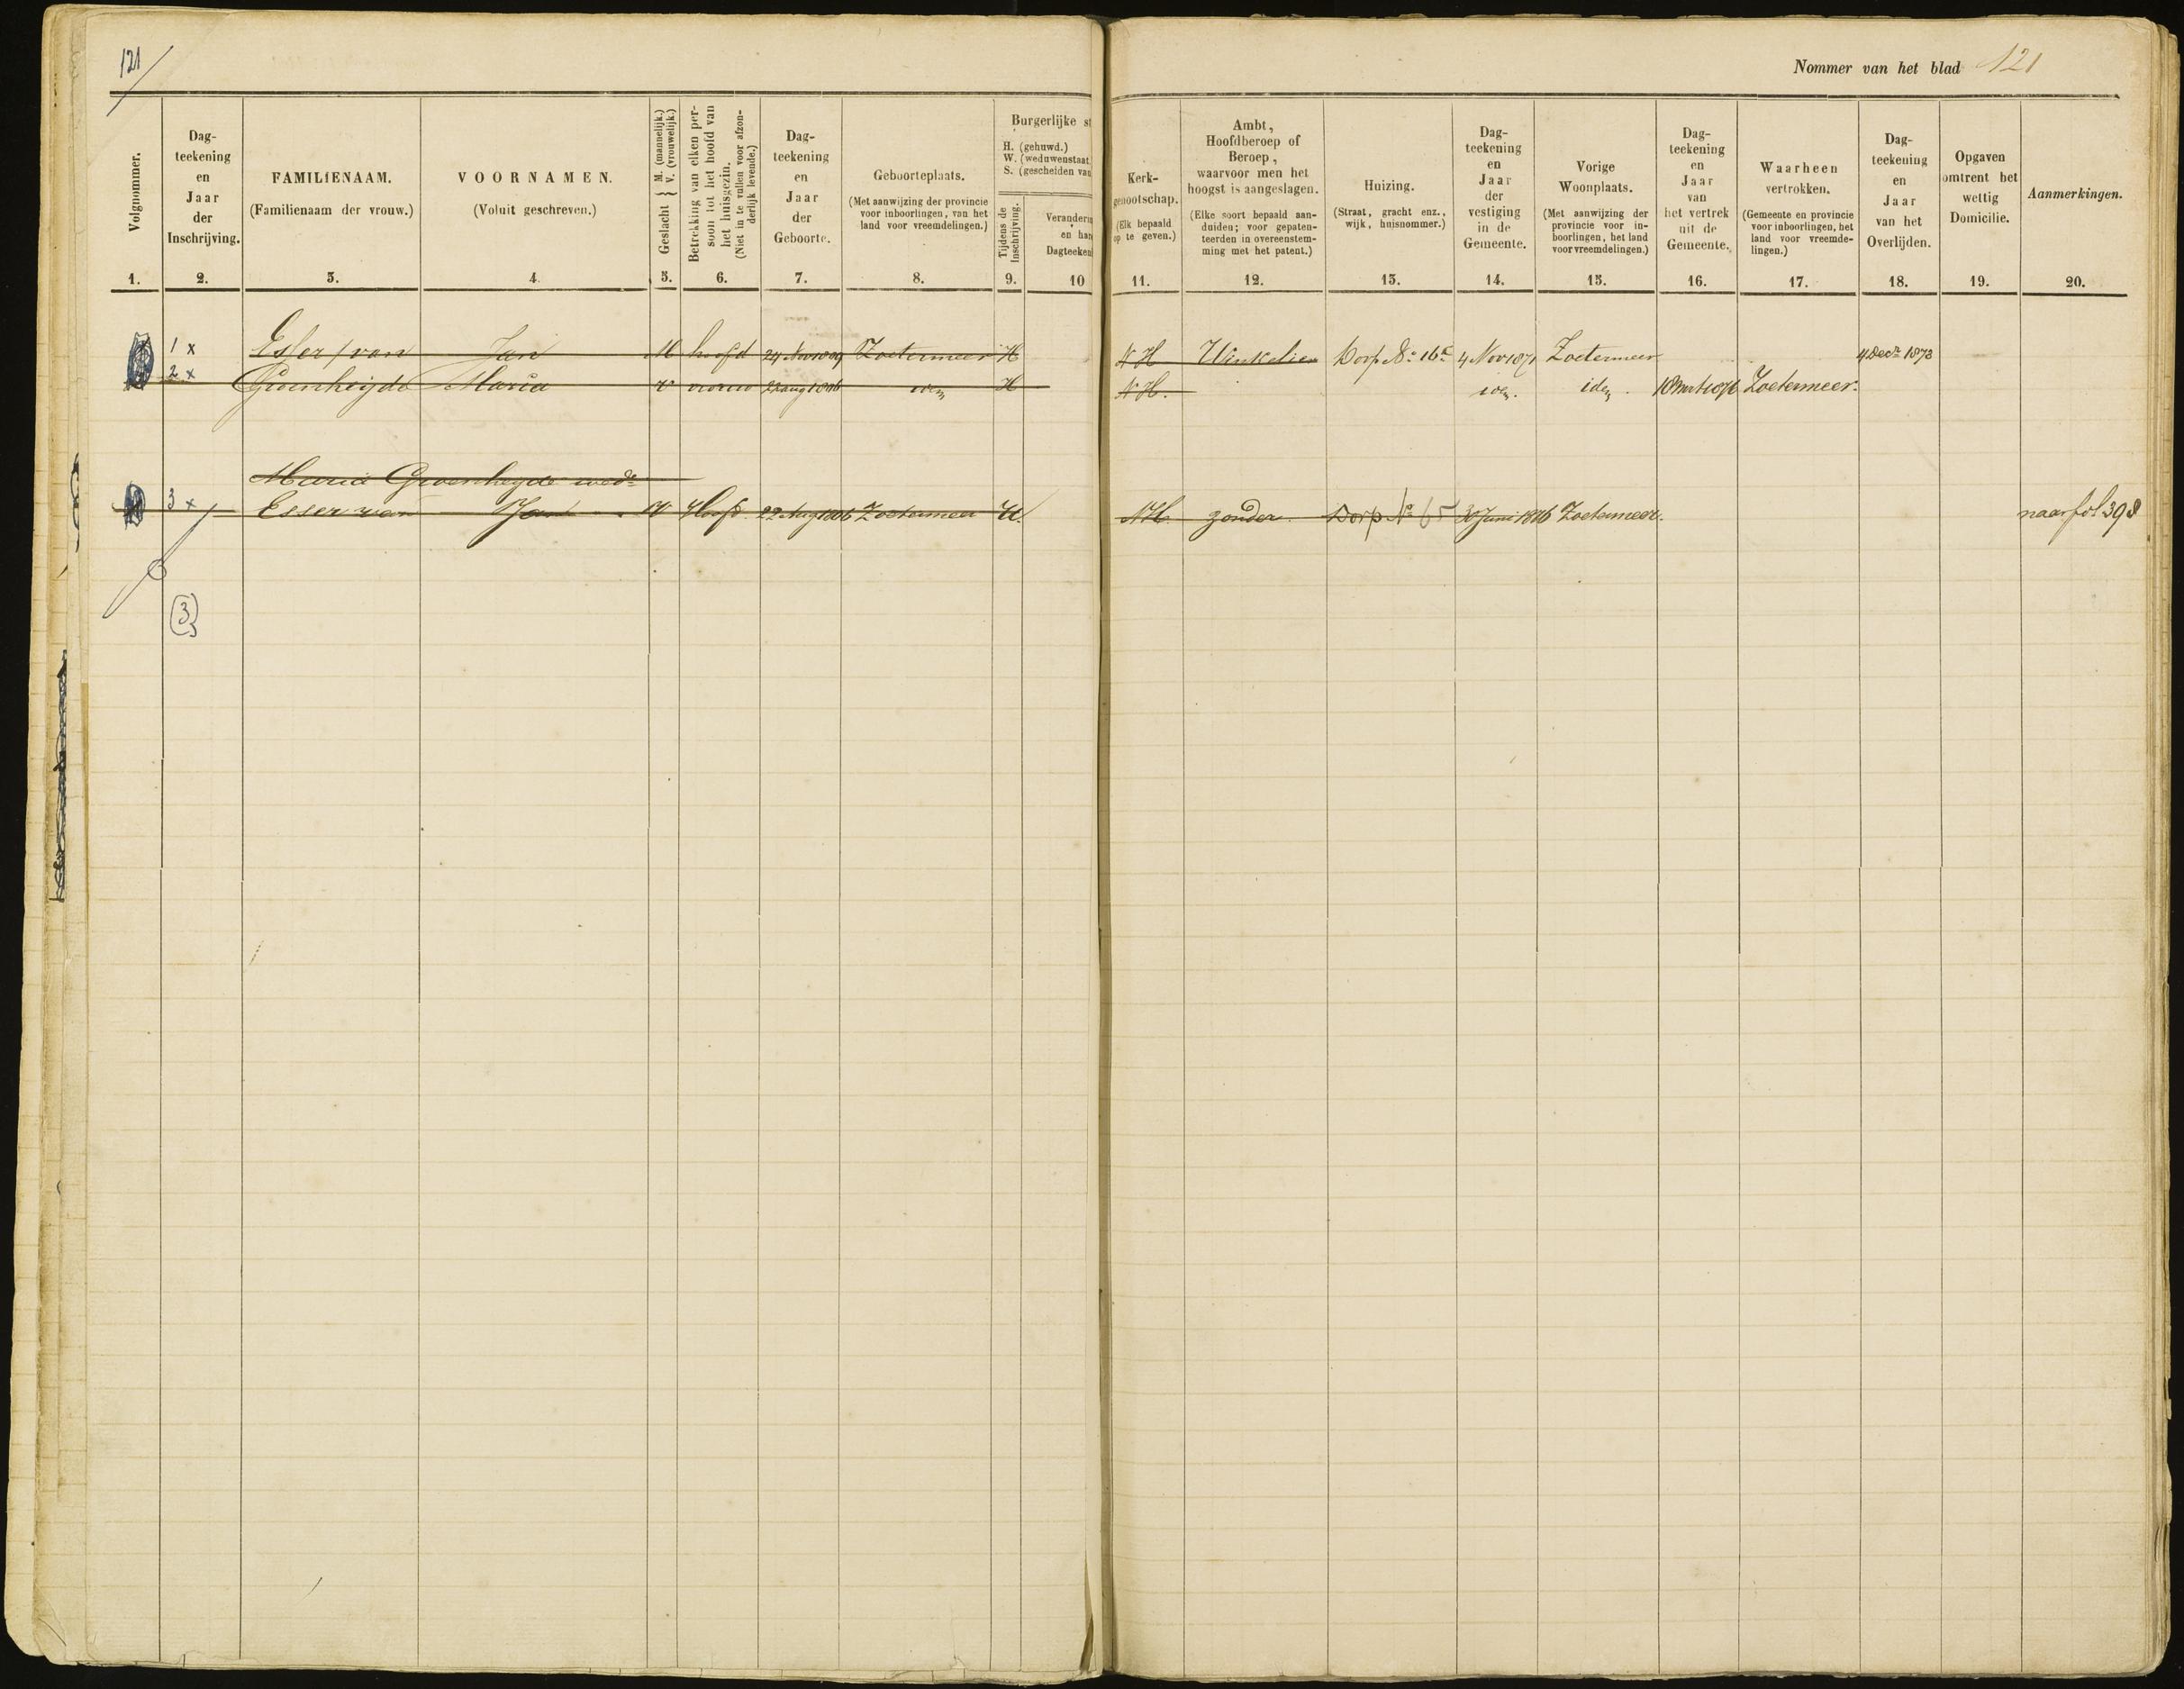 121
Nommer van het blad 121
Volgnommer.
Dag-
teekening
en
Jaar
der
Inschrijving.
FAMILIENAAM.
(Familienaam der vrouw.)
VOORNAMEN.
(Voluit geschreven.)
Geslacht { M. (mannelijk.)
V. (vrouwelijk.)
Betrekking van elken per-
soon tot het hoofd van
het huisgezin.
(Niet in te vullen voor afzon-
derlijk levende.)
Dag-
teekening
en
Jaar
der
Geboorte.
Geboorteplaats.
(Met aanwijzing der provincie
voor inboorlingen, van het
land voor vreemdelingen.)
Burgerlijke st
H. (gehuwd.)
W. (weduwenstaat.
S. (gescheiden van
Tijdens de
Inschrijving.
Veranderin
en han
Dagteeken
Kerk-
genootschap.
(Elk bepaald
op te geven.)
Ambt,
Hoofdberoep of
Beroep,
waarvoor men het
hoogst is aangeslagen.
(Elke soort bepaald aan-
duiden; voor gepaten-
teerden in overeenstem-
ming met het patent.)
Huizing.
(Straat, gracht enz.,
wijk, huisnommer.)
Dag-
teekening
en
Jaar
der
vestiging
in de
Gemeente.
Vorige
Woonplaats.
(Met aanwijzing der
provincie voor in-
boorlingen, het land
voor vreemdelingen.)
Dag-
teekening
en
Jaar
van
het vertrek
uit de
Gemeente.
Waarheen
vertrokken.
(Gemeente en provincie
voor inboorlingen, het
land voor vreemde-
lingen.)
Dag-
teekening
en
Jaar
van het
Overlijden.
Opgaven
omtrent het
wettig
Domicilie.
Aanmerkingen.
1. 2. 3. 4. 5. 6. 7. 8. 9. 10 11. 12. 13. 14. 15. 16. 17. 18. 19. 20.
1 x Esser / van Jan M hoofd 24 Nov 1809 Zoetermeer H N H Winkelier Dorp No 16c 4 Nov 1871 Zoetermeer 4 Decr 1873
2 x Groenheijde Maria V vrouw 22 aug 1806 idem H N H. idem. idem. 18 Mrt 1876 Zoetermeer.
Maria Groenheyde wede
3 x Esser van Jan V Hoofd 22 Aug 1806 Zoetermeer W. N.H. zonder Dorp No 65 30 Juni 1876 Zoetermeer. naar fol 398
3